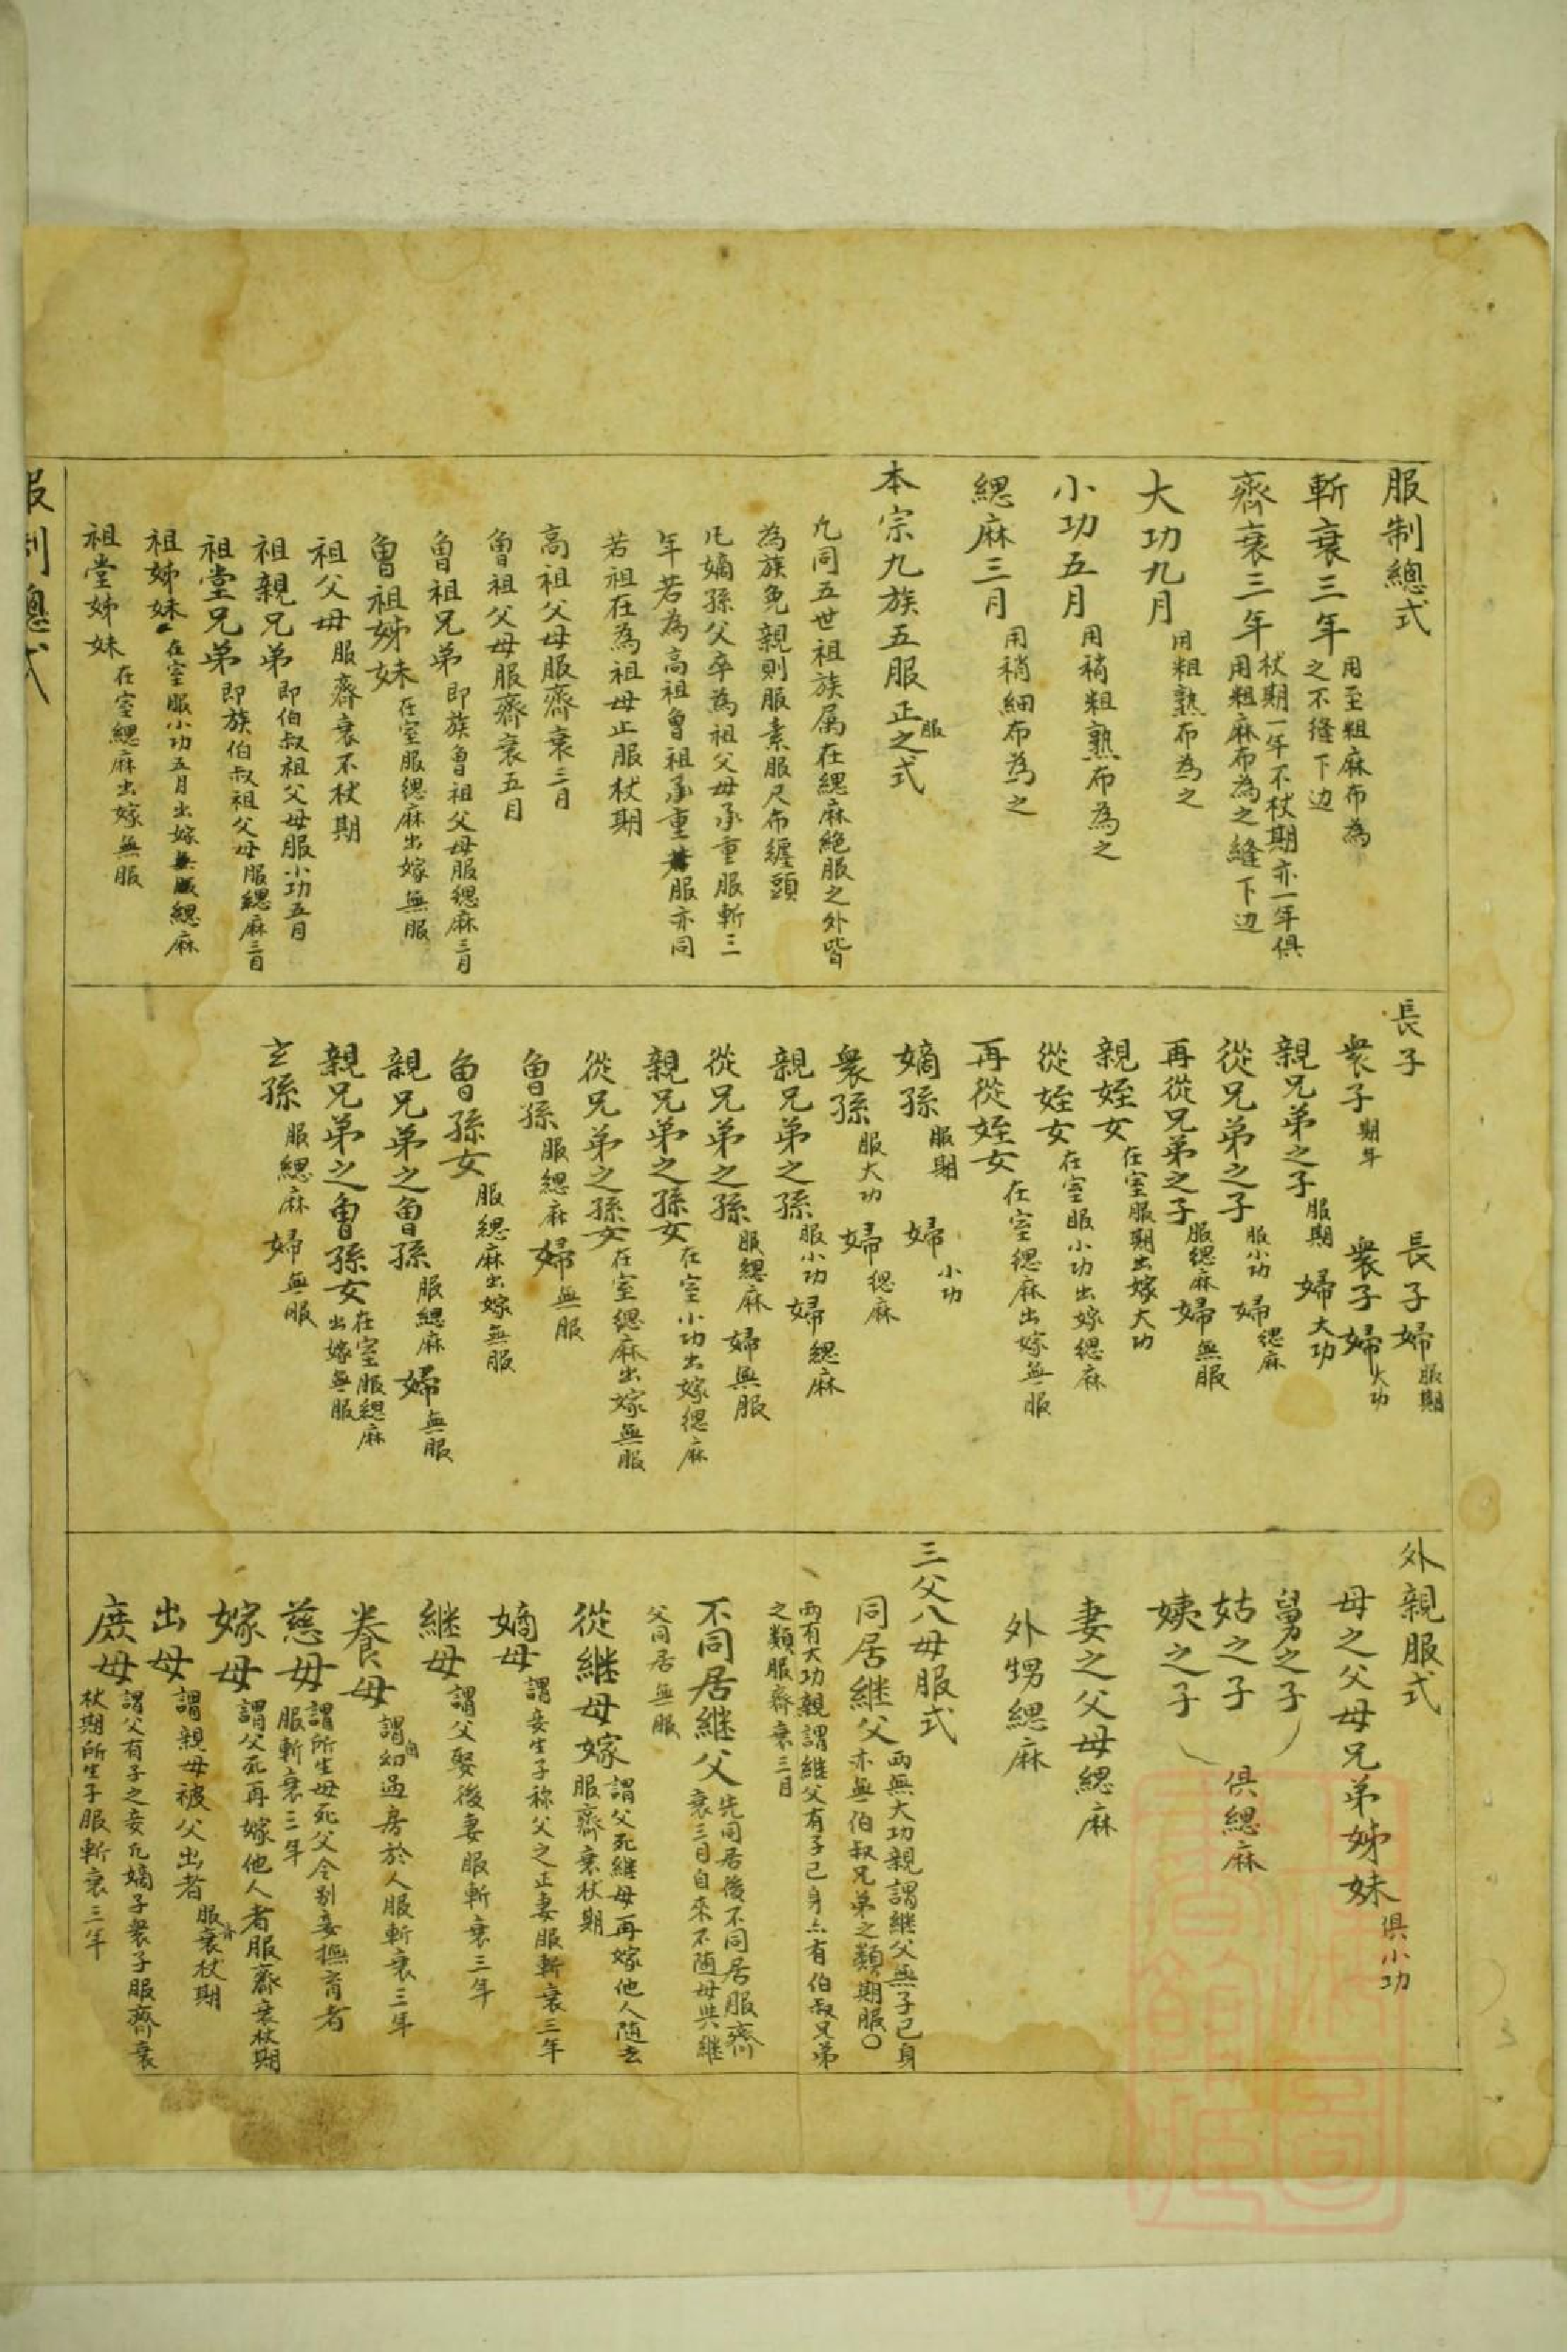 服制總式
斬衰三年 用至粗麻布為之不縫下边
齊衰三年 杖期一年不杖期亦一年俱用粗麻布為之縫下边
大功九月 用粗熟布為之
小功五月 用稍粗熟布為之
緦麻三月 用稍細布為之
本宗九族五服正服之式
凢同五世祖族属在緦麻絶服之外皆
為族免親則服素服尺布纏頭
凢嫡孫父卒為祖父母承重服斬三
年若為高祖曾祖承重服亦同
若祖在為祖母止服杖期
高祖父母服齊衰三月
曾祖父母服齊衰五月
曾祖兄弟 即族曾祖父母服緦麻三月
曾祖姊妹 在室服緦麻出嫁無服
祖父母 服齊衰不杖期
祖親兄弟 即伯叔祖父母服小功五月
祖堂兄弟 即族伯叔祖父母服緦麻三月
祖姊妹 在室服小功五月出嫁緦麻
祖堂姊妹 在室緦麻出嫁無服
服制總式
長子 長子婦 服期
衆子 期年 衆子婦 大功
親兄弟之子 服期 婦 大功
從兄弟之子 服小功 婦 緦麻
再從兄弟之子 服緦麻 婦 無服
親姪女 在室服期出嫁大功
從姪女 在室服小功出嫁緦麻
再從姪女 在室緦麻出嫁無服
嫡孫 服期 婦 小功
衆孫 服大功 婦 緦麻
親兄弟之孫 服小功 婦 緦麻
從兄弟之孫 服緦麻 婦 無服
親兄弟之孫女 在室小功出嫁緦麻
從兄弟之孫女 在室緦麻出嫁無服
曾孫 服緦麻 婦 無服
曾孫女 服緦麻出嫁無服
親兄弟之曾孫 服緦麻 婦 無服
親兄弟之曾孫女 在室服緦麻出嫁無服
玄孫 服緦麻 婦 無服
外親服式
母之父母兄弟姊妹 俱小功
舅之子
姑之子 俱緦麻
姨之子
妻之父母緦麻
外甥緦麻
三父八母服式
同居継父 両無大功親謂継父無子己身亦無伯叔兄弟之類期服〇
両有大功親謂継父有子己身亦有伯叔兄弟之類服齊衰三月
不同居継父 先同居後不同居服齊衰三月自來不随母與継
父同居無服
從継母嫁 謂父死継母再嫁他人随去服齊衰杖期
嫡母 謂妾生子称父之正妻服斬衰三年
継母 謂父娶後妻服斬衰三年
養母 謂自幼過房於人服斬衰三年
慈母 謂所生母死父令别妾撫育者服斬衰三年
嫁母 謂父死再嫁他人者服齊衰杖期
出母 謂親母被父出者服齊衰杖期
庶母 謂父有子之妾凢嫡子衆子服齊衰杖期所生子服斬衰三年